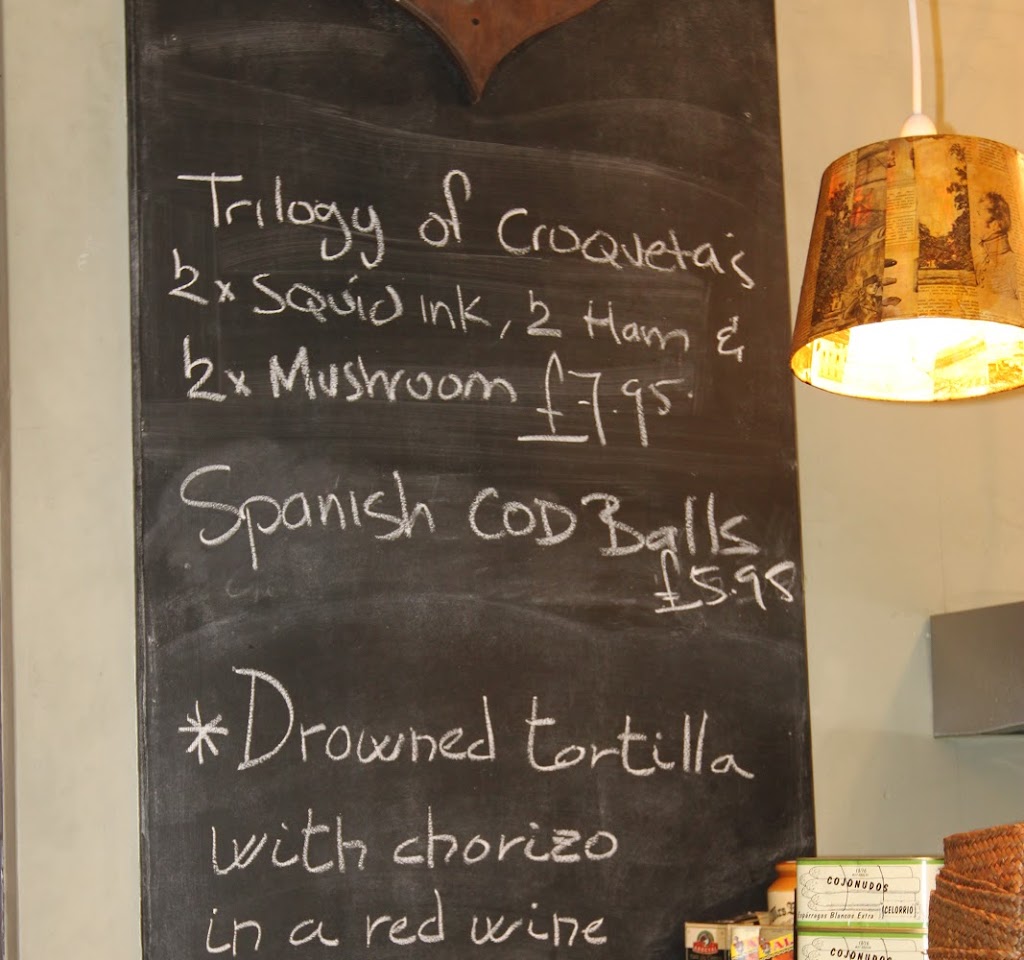 Trilogy of Croqueta's
2x Squid ink, 2 Ham &
2x Mushroom £7.95.
Spanish COD Balls
£5.95
*Drowned tortilla
with chorizo
in a red wine
COJONUDOS
Espárragos Blancos Extra
CELORRIO
COJONUDOS